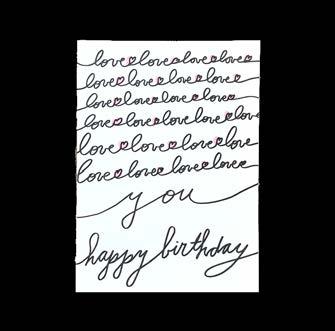 love love love love
love love love love
love love love love
love love love love
love love love love
love love love love
you
happy birthday